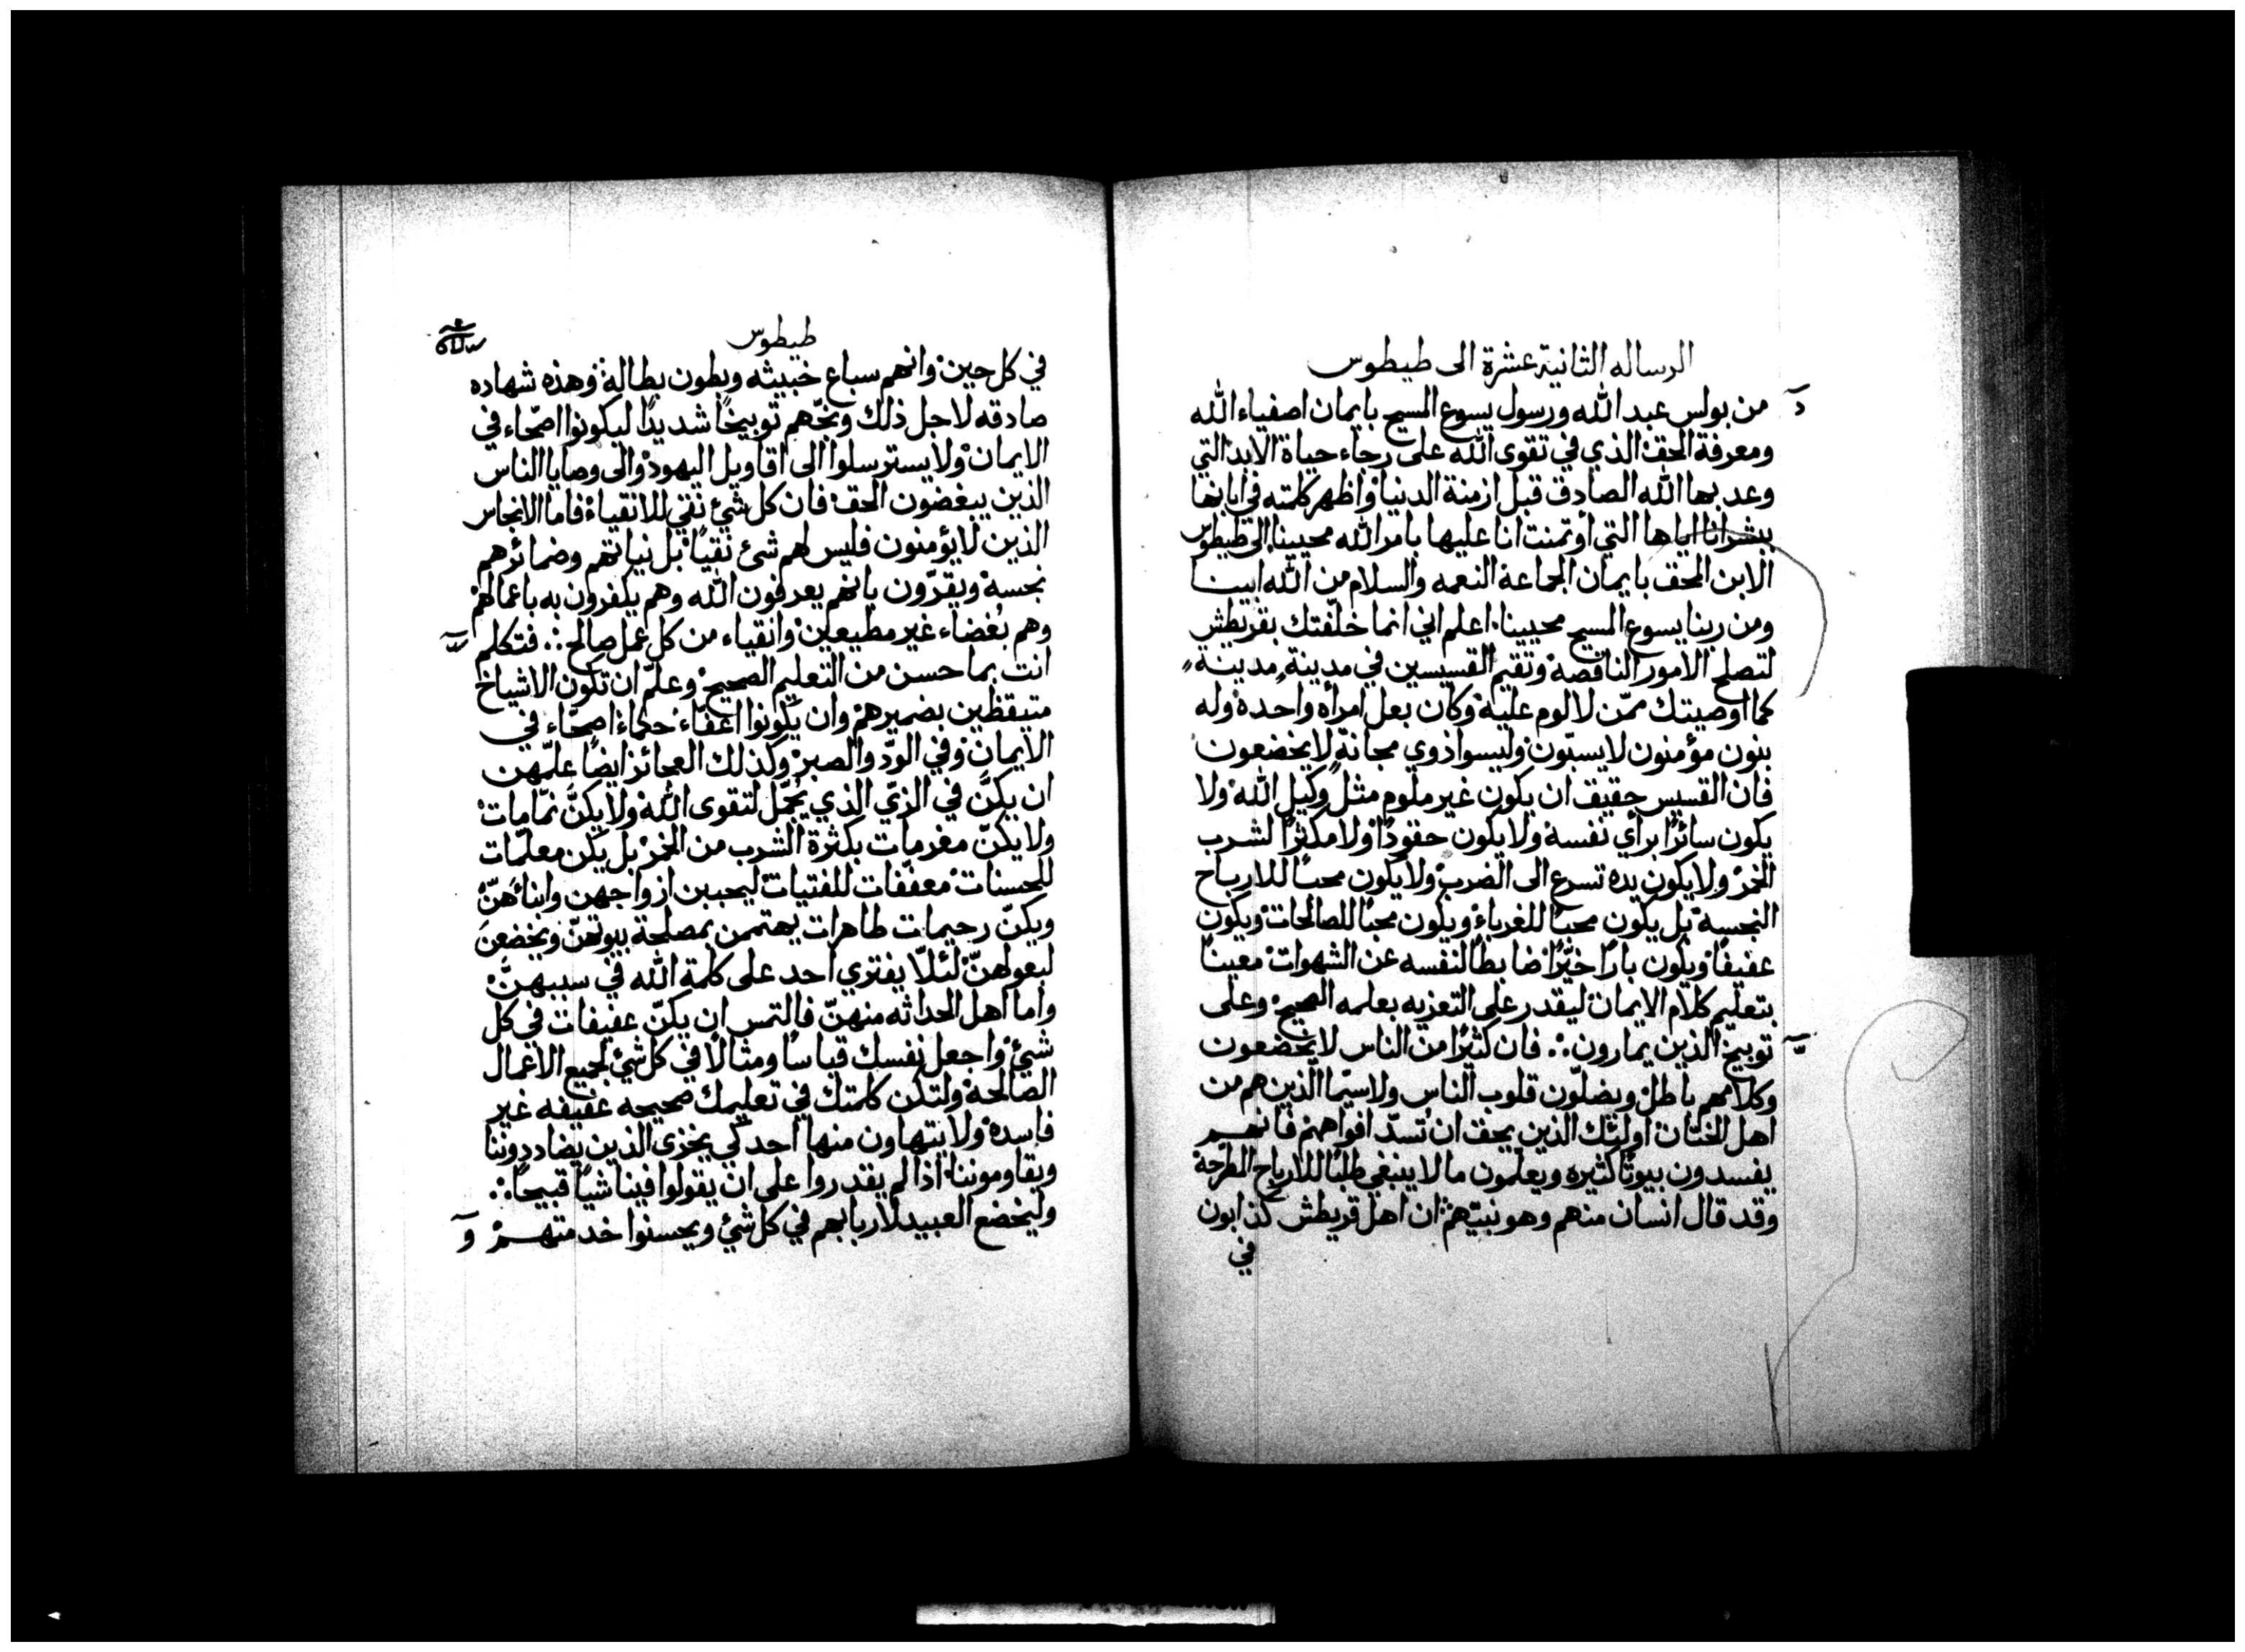 الرساله الثانية عشرة الى طيطوس
من بولس عبد الله ورسول يسوع المسيح بايمان اصفياء الله
ومعرفة الحق الذي في تقوى الله على رجاء حياة الابد التي
وعد بها الله الصادق قبل ازمنة الدنيا واظهر كلمته في ابانها
ببشرانا اياها التي أوتمنت انا عليها بامر الله محيينا الى طيطوس
الابن المحق بايمان الجماعة النعمه والسلام من الله ابينا
ومن ربنا يسوع المسيح محيينا. اعلم اني انما خلّفتك بقريطش
لتصلح الامور الناقصة وتقيم القسيسين في مدينة مدينة
كما اوصيتك ممّن لا لوم عليه وكان بعل امرأه واحدة وله
بنون مؤمنون لا يسبّون وليسوا ذوي مجانةٍ لا يخضعون
فان القسيس حقيق ان يكون غير ملوم مثل وكيل الله ولا
يكون سائرًا برأي نفسه ولا يكون حقودًا ولا مكثرًا لشرب
الخمر ولا يكون يده تسرع الى الضرب ولا يكون محبًا للارباح
النجسة بل يكون محبًا للغرباء ويكون محبًا للصالحات ويكون
عفيفًا ويكون بارًا خيّرًا ضابطا لنفسه عن الشهوات معينًا
بتعليم كلام الايمان ليقدر على التعزيه بعلمه الصحيح وعلى
توبيخ الذين يمارون ∴ فان كثيرًا من الناس لا يخضعون
وكلامهم باطل ويضلّون قلوب الناس ولا سيّما الذين هم من
اهل الختان اوليك الذين يحق ان تُسدّ افواههم فانهم
يفسدون بيوتًا كثيره ويعلمون ما لا ينبغي طلبًا للارباح المطرحة
وقد قال انسان منهم وهو نبيّهم ان اهل قريطش كذابون
في
طيطوس
في كل حين وانهم سباع خبيثه وبطون بطالة وهذه شهاده
صادقه لاجل ذلك وبّخهم توبيخًا شديدًا ليكونوا اصحّاء في
الايمان ولا يسترسلوا الى اقاويل اليهود والى وصايا الناس
الذين يبغضون الحق فان كل شيء نقي للانقياء فاما الانجاس
الذين لا يؤمنون فليس لهم شئ نقيًا بل نياتهم وضمائرهم
نجسة ويقرّون بانهم يعرفون الله وهم يكفرون به باعمالهم
وهم بُغضاء غير مطيعين وانقياء من كل عمل صالح ∴ فتكلم
انت بما حسن من التعليم الصحيح وعلّم ان تكون الاشياخ
متيقظين بضميرهم وان يكونوا اعفّاء حكماء اصحّاء في
الايمان وفي الودّ والصبر وكذلك العجائز ايضًا علّمهن
ان يكنّ في الزيّ الذي يُجمّل لتقوى الله ولا يكنّ نمّامات
ولا يكنّ مغرمات بكثرة الشرب من الخمر بل يكن معلّمات
للحسنات معفّفات للفتيات ليحببن ازواجهن وابناءهنّ
ويكنّ رحيمات طاهرات يهتممن بمصلحة بيوتهنّ ويخضعن
لبعولهنّ لئلّا يفتري احد على كلمة الله في سببهنّ
واما اهل الحداثه منهنّ فالتمس ان يكنّ عفيفات في كل
شيء واجعل نفسك قياسًا ومثالًا في كل شيء لجميع الاعمال
الصالحة ولتكن كلمتك في تعليمك صحيحه عفيفه غير
فاسدة ولا يتهاون منها احد كي يخزى الذين يضادروننا
ويقاوموننا اذا لم يقدروا على ان يقولوا فينا شيًا قبيحًا ∴
وليخضع العبيد لاربابهم في كل شيء ويحسنوا خدمتهم